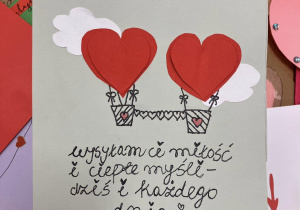 wysyłam ci miłość
i ciepłe myśli-
dziś i każdego
dnia